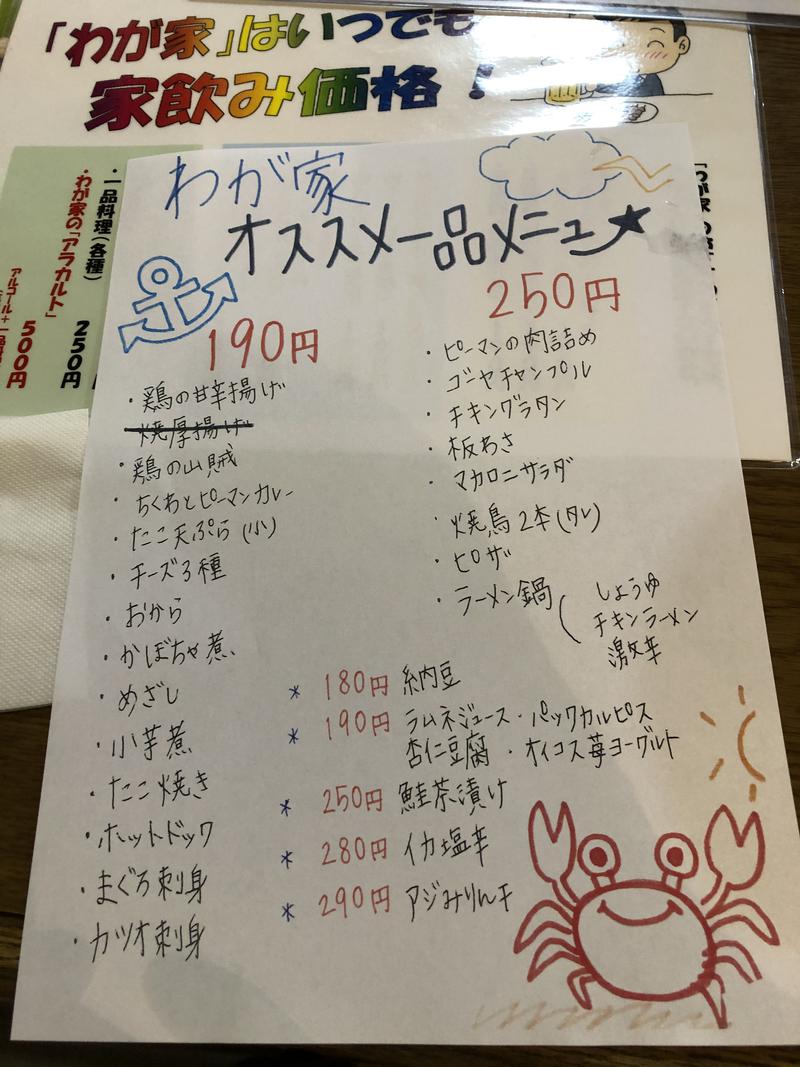 「わが家」はいつでも
家飲み価格!
・一品料理(各種)
250円
・わが家の「アラカルト」
500円
わが家
オススメ一品メニュー★
190円
・鶏の甘辛揚げ
焼厚揚げ
・鶏の山賊
・ちくわとピーマンカレー
・たこ天ぷら(小)
・チーズ3種
・おから
・かぼちゃ煮
・めざし
・小芋煮
・たこ焼き
・ホットドック
・まぐろ刺身
・カツオ刺身
250円
・ピーマンの肉詰め
・ゴーヤチャンプル
・チキングラタン
・板わさ
・マカロニサラダ
・焼鳥2本(タレ)
・ピザ
・ラーメン鍋
しょうゆ
チキンラーメン
激辛
* 180円 納豆
* 190円 ラムネジュース・パックカルピス
杏仁豆腐・オイコス苺ヨーグルト
* 250円 鮭茶漬け
* 280円 イカ塩辛
* 290円 アジみりん干